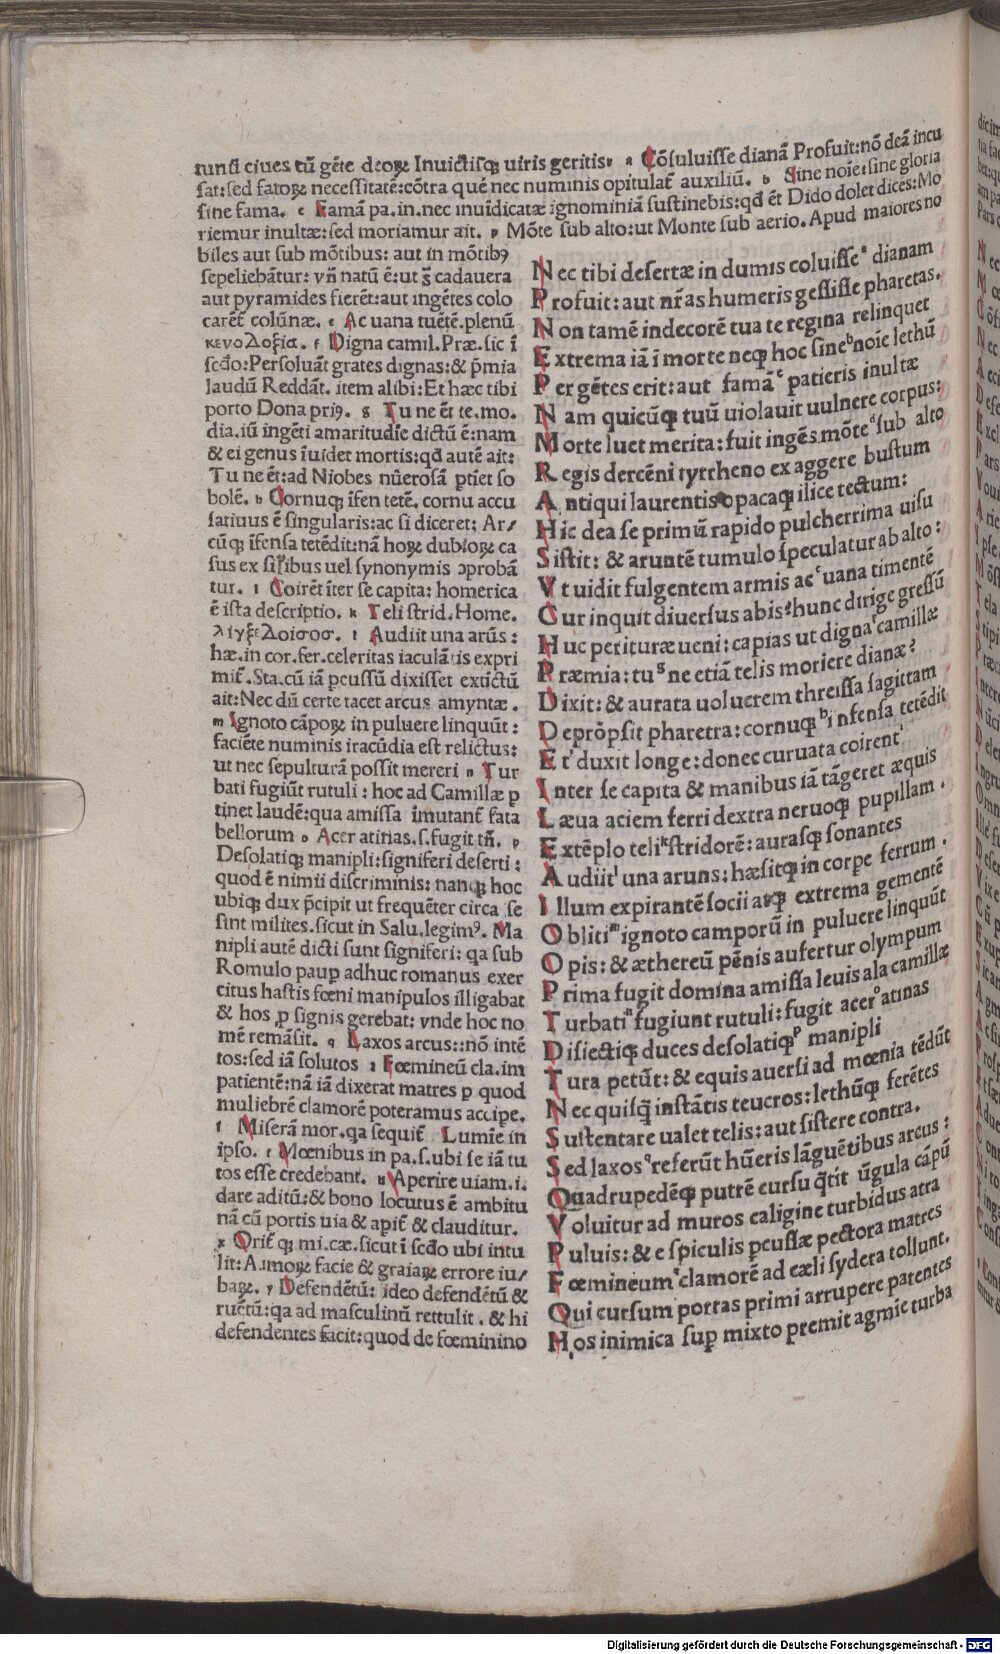 runt ciues cū gēte deoꝝ Inuictisq̧ uiris geritis. a Cōsuluisse dianā Profuit:nō deā incu
sat:sed fatoꝝ necessitatē:cōtra quē nec numinis opitulat̄ auxiliū. b Sine noīe:sine gloria
sine fama. c Famā pa.in.nec inuīdicatæ ignominiā sustinebis:qd ēt Dido dolet dices:Mo
riemur inultæ:sed moriamur ait. d Mōte sub alto:ut Monte sub aerio. Apud maiores no
biles aut sub mōtibus: aut in mōtibꝰ
sepeliebātur: vñ natū ē:ut s̄ cadauera
aut pyramides fierēt:aut ingētes colo
carēt̄ colūnæ. e Ac uana tuētē.plenū
κενολοξια. f Digna camil.Præ.sic ī
scdo:Persoluāt grates dignas:& p̄mia
laudū Reddāt. item alibi:Et hæc tibi
porto Dona priꝰ. g Tu ne ēt te.mo.
dia.iū ingēti amaritudīe dictū ē:nam
& ei genus īuidet mortis:qd autē ait:
Tu ne ēt:ad Niobes nūerosā ptiet so
bolē. h Cornuq̧ īfen tetē. cornu accu
satiuus ē singularis:ac si diceret: Ar/
cūq̧ īfensa tetēdit:nā hoꝝ dubioꝝ ca
sus ex sifibus uel synonymis ꝯprobā
tur. i Coirēt īter se capita: homerica
ē ista descriptio. k Teli strid. Home.
λιγξελοισοσ. l Audiit una arūs:
hæ.in cor.fer.celeritas iaculātis expri
mit̄. Sta.cū iā pcussū dixisset extīctū
ait:Nec dū certe tacet arcus amyntæ.
m Ignoto cāpoꝝ in puluere linquūt:
faciēte numinis iracūdia est relictus:
ut nec sepulturā possit mereri n Tur
bati fugiūt rutuli: hoc ad Camillæ p
tinet laudē:qua amissa īmutant̄ fata
bellorum o Acer atinas.s.fugit tn̄. p
Desolatiq̧ manipli:signiferi deserti:
quod ē nimii discriminis: nanq̧ hoc
ubiq̧ dux p̄cipit ut frequēter circa se
sint milites.sicut in Salu.legimꝰ. Ma
nipli autē dicti sunt signiferi: qa sub
Romulo paup adhuc romanus exer
citus hastis fœni manipulos illigabat
& hos p signis gerebat: vnde hoc no
mē remāsit. q Laxos arcus::nō intē
tos:sed iā solutos r Fœmineū cla.im
patientē:nā iā dixerat matres p quod
muliebrē clamorē poteramus accipe.
s Miserā mor.qa sequit̄ Lumīe in
ipso. t Mœnibus in pa.s.ubi se iā tu
tos esse credebant. u Aperire uiam.i.
dare aditū:& bono locutus ē ambitu
nā cū portis uia & apit̄ & clauditur.
x Orit̄ q̧ mi.cæ.sicut ī scdo ubi intu
lit:Armoꝝ facie & graiaꝝ errore iu/
baꝝ. y Defendētū: ideo defendētū &
ruētū:qa ad masculinū rettulit. & hi
defendentes facit:quod de fœminino
Nec tibi desertæ in dumis coluisseᵃ dianam
Profuit:aut nr̄as humeris gessisse pharetas.
Non tamē indecorē tua te regina relinquet
Extrema iā ī morte neq̧ hoc sineᵇnoīe lethū
Per gētes erit:aut famāᶜ patieris inultæ
Nam quicūq̧ tuū uiolauit uulnere corpus:
Morte luet merita:fuit ingēs mōteᵈsub alto
Regis dercēni tyrrheno ex aggere bustum
Antiqui laurentis opacaq̧ ilice tectum:
Hic dea se primū rapido pulcherrima uisu
Sistit: & aruntē tumulo speculatur ab alto:
Vt uidit fulgentem armis acᵉuana timentē
Cur inquit diuersus abis?hunc dirige gressū
Huc perituræ ueni:capias ut dignaᶠcamillæ
Præmia:tuᵍne etiā telis moriere dianæ?
Dixit: & aurata uoluerem threissa sagittam
Deprōpsit pharetra:cornuq̧ʰinfensa tetēdit
Etⁱduxit longe:donec curuata coirent
Inter se capita & manibus iā tāgeret æquis
Læua aciem ferri dextra neruoq̧ pupillam.
Extēplo teliᵏstridorē:aurasq̧ sonantes
Audiitˡuna aruns:hæsitq̧ in corpe ferrum.
Illum expirantē socii atq̧ extrema gementē
Oblitiᵐignoto camporū in puluere linquūt
Opis:& æthereū pēnis aufertur olympum
Prima fugit domina amissa leuis ala camillæ
Turbatiⁿfugiunt rutuli:fugit acerᵒatinas
Disiectiq̧ duces desolatiq̧ᵖ manipli
Tura petūt:& equis auersi ad mœnia tēdūt
Nec quisq̄ instātis teucros:lethūq̧ ferētes
Sustentare ualet telis:aut sistere contra.
Sed laxos qreferūt hūeris lāguētibus arcus:
Quadrupedēq̧ putrē cursu q̄tit ūgula cāpū
Voluitur ad muros caligine turbidus atra
Puluis:& e spiculis pcussæ pectora matres
Fœmineumʳclamorē ad cæli sydera tollunt.
Qui cursum portas primi arrupere patentes
Hos inimica sup mixto premit agmīe turba
Digitalisierung gefördert durch die Deutsche Forschungsgemeinschaft - DFG